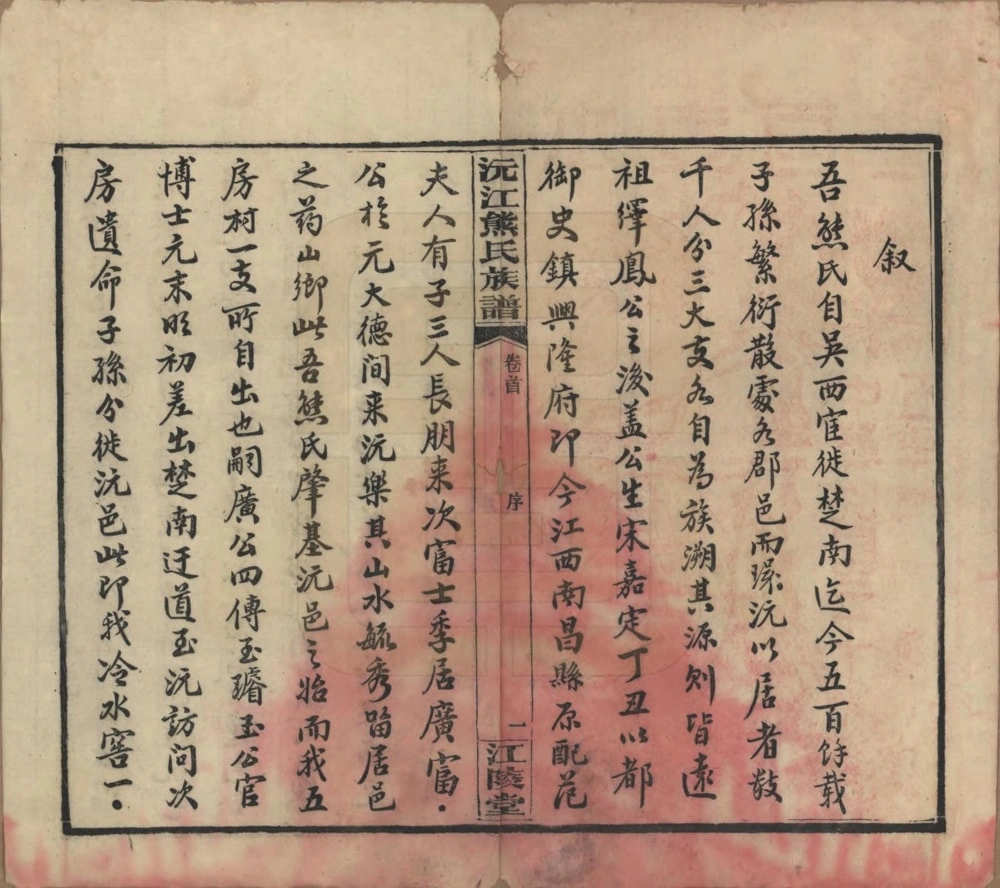 叙
吾熊氏自吳西宦徙楚南迄今五百餘载
子孫繁衍散處各郡邑而環沅以居者数
千人分三大支各自為族溯其源则皆遠
祖繹鳳公之後盖公生宋嘉定丁丑以都
御史鎮興隆府即今江西南昌縣原配范
沅江熊氏族譜
卷首
序
一
江陵堂
夫人有子三人長朋来次富士季居廣富
公於元大德间来沅樂其山水毓秀留居邑
之药山鄉此吾熊氏肇基沅邑之始而我五
房村一支所自出也嗣廣公四傳至璿玉公官
博士元末明初差出楚南迂道至沅訪问次
房遺命子孫分徙沅邑此即我冷水窖一